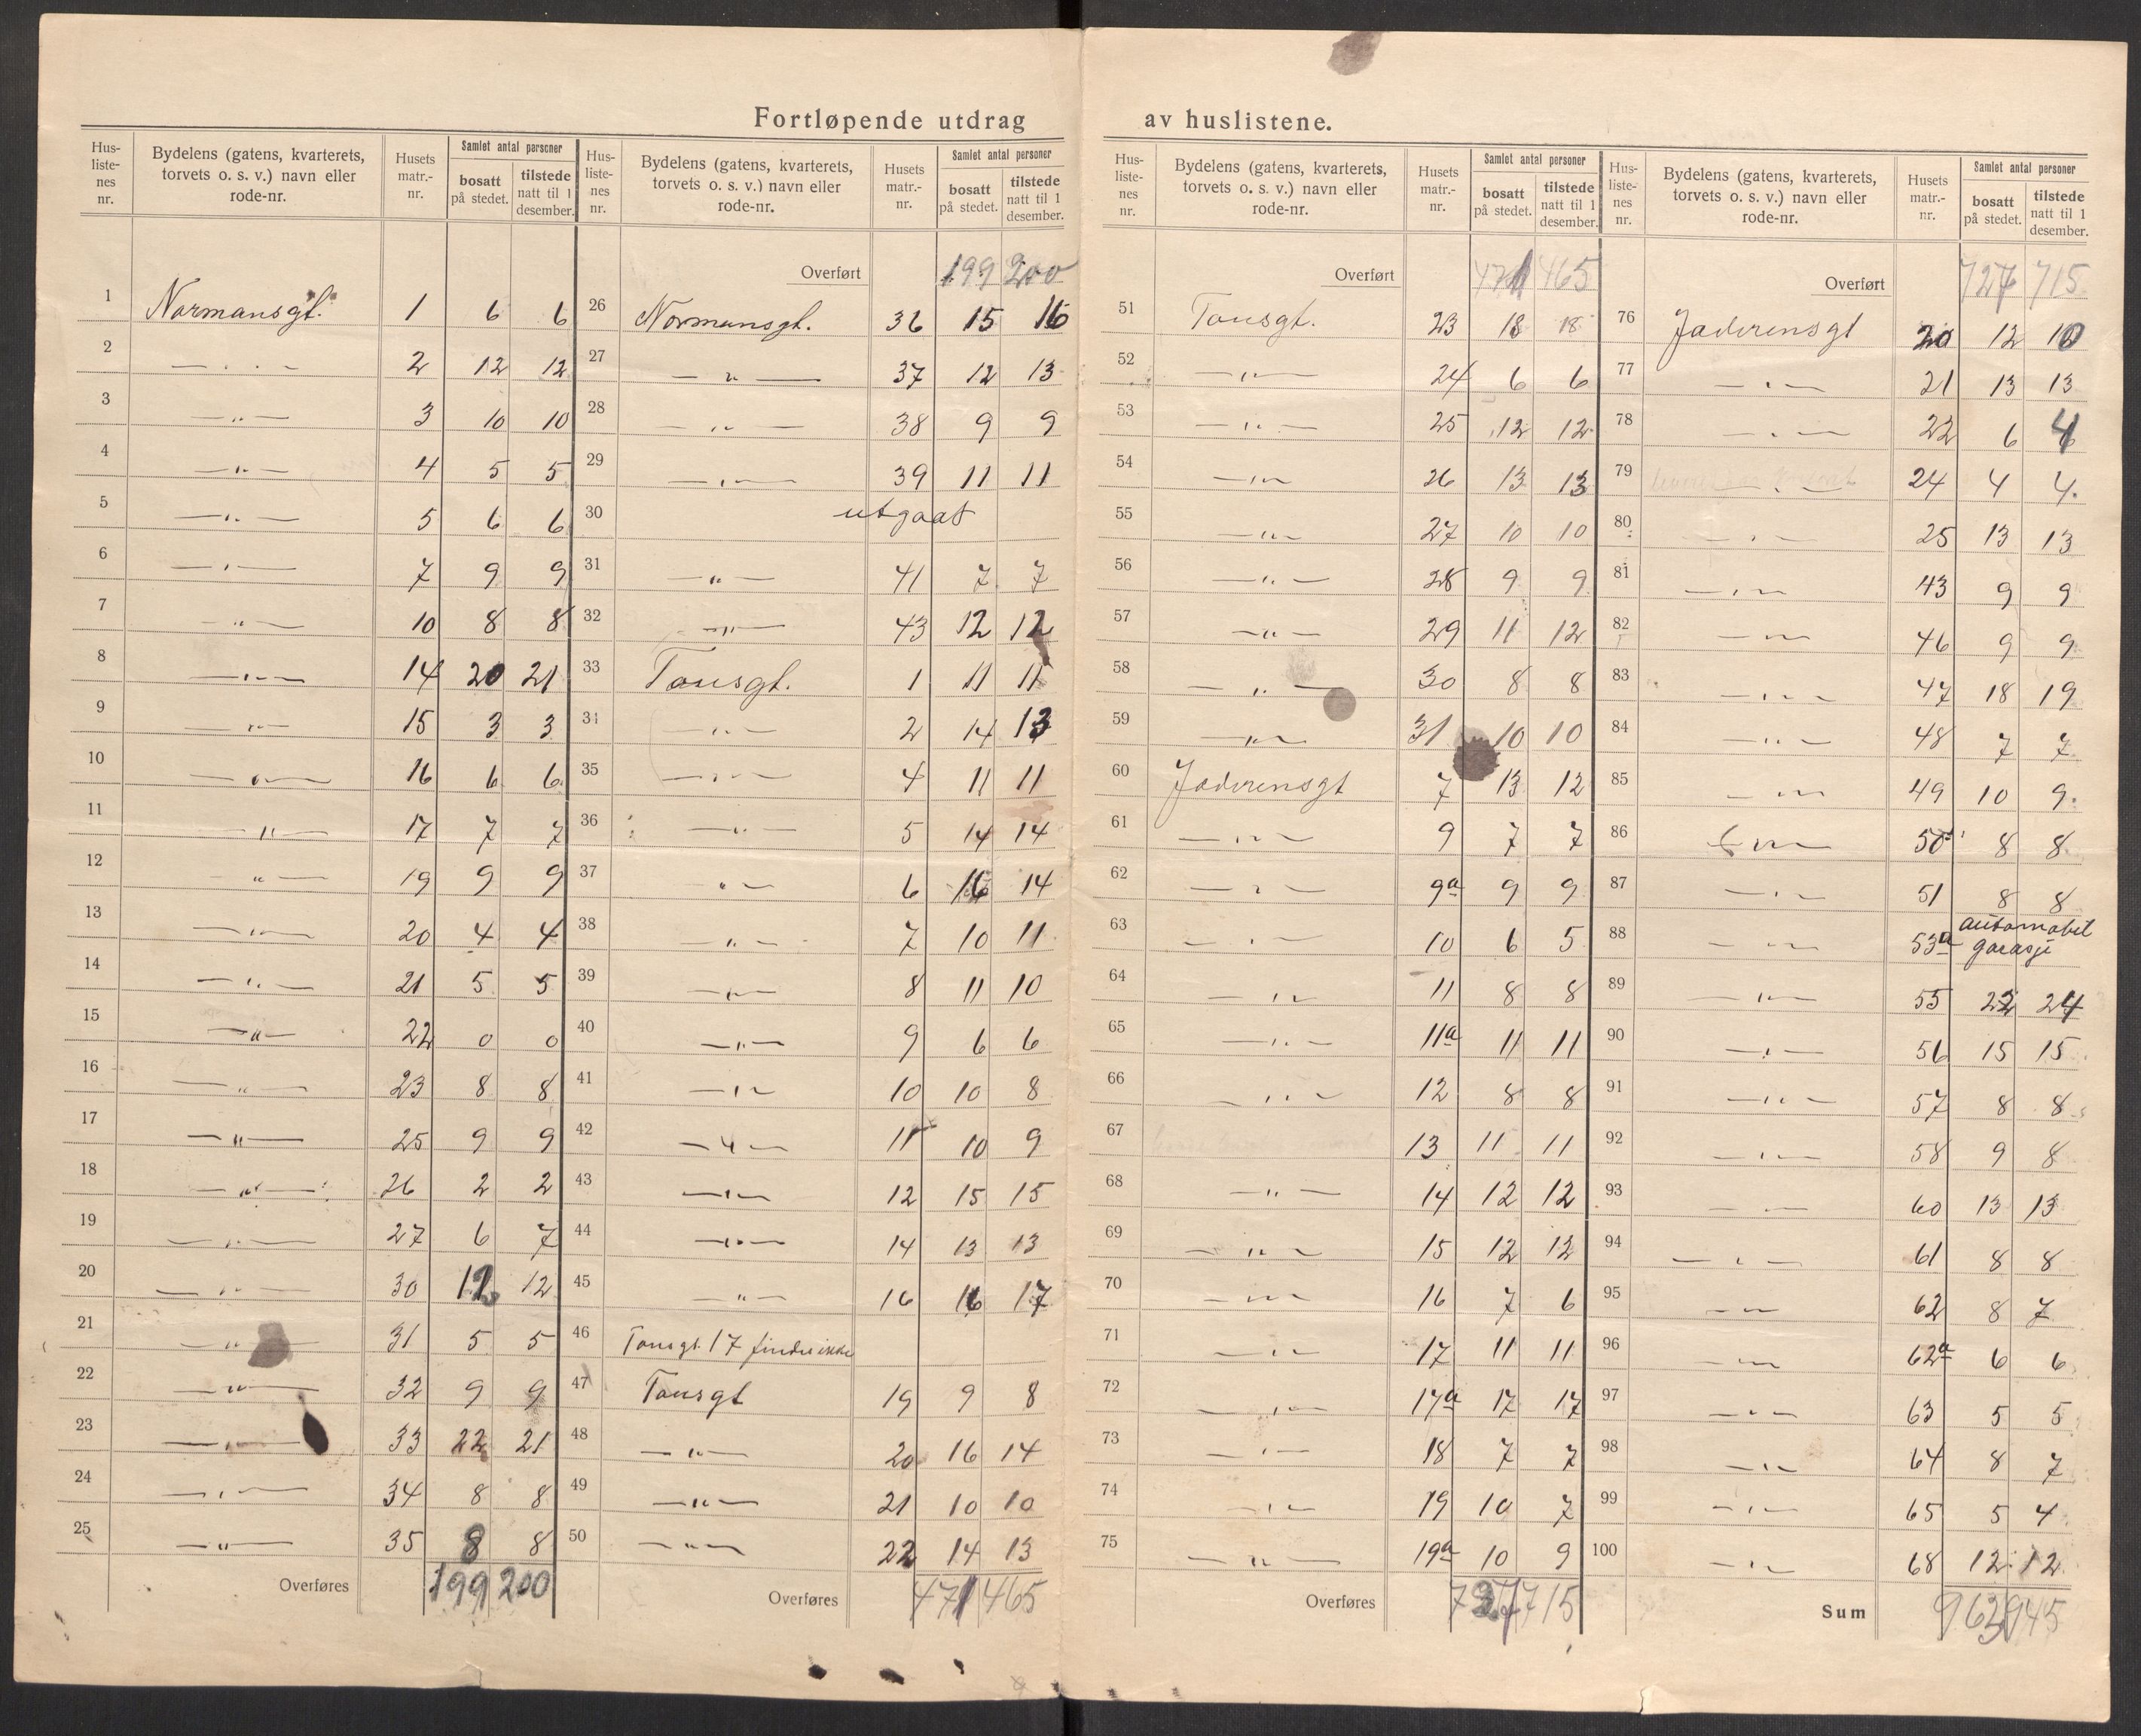 Fortløpende utdrag av huslistene.
Hus-listenes nr. | Bydelens (gatens, kvarterets, torvets o. s. v.) navn eller rode-nr. | Husets matr.-nr. | Samlet antal personer bosatt på stedet. | tilstede natt til 1 desember.
1 Normansgt. 1 6 6
2 — . . — 2 12 12
3 — " — 3 10 10
4 — " — 4 5 5
5 — " — 5 6 6
6 — " — 7 9 9
7 — " — 10 8 8
8 — " — 14 20 21
9 — " — 15 3 3
10 — " — 16 6 6
11 — " — 17 7 7
12 — " — 19 9 9
13 — " — 20 4 4
14 — " — 21 5 5
15 — " — 22 0 0
16 — " — 23 8 8
17 — " — 25 9 9
18 — " — 26 2 2
19 — " — 27 6 7
20 — " — 30 12
21 — " — 31 5 5
22 — " — 32 9 9
23 — " — 33 22 21
24 — " — 34 8 8
25 — " — 35 8 8
Overføres 199 200
Hus-listenes nr. | Bydelens (gatens, kvarterets, torvets o. s. v.) navn eller rode-nr. | Husets matr.-nr. | Samlet antal personer bosatt på stedet. | tilstede natt til 1 desember.
Overført 199 200
26 Normansgt. 36 15 16
27 — " — 37 12 13
28 — " — 38 9 9
29 — " — 39 11 11
30 utgaat
31 — " — 41 7 7
32 — " — 43 12 12
33 Tousgt. 1 11 11
34 — " — 2 14 13
35 — " — 4 11 11
36 — " — 5 14 14
37 — " — 6 16 14
38 — " — 7 10 11
39 — " — 8 11 10
40 — " — 9 6 6
41 — " — 10 10 8
42 — " — 11 10 9
43 — " — 12 15 15
44 — " — 14 13 13
45 — " — 16 16 17
46 Tousgt. 17 findes ikke
47 Tousgt 19 9 8
48 — " — 20 16 14
49 — " — 21 10 10
50 — " — 22 14 13
Overføres 471 465
Hus-listenes nr. | Bydelens (gatens, kvarterets, torvets o. s. v.) navn eller rode-nr. | Husets matr.-nr. | Samlet antal personer bosatt på stedet. | tilstede natt til 1 desember.
Overført 471 465
51 Tousgt. 23 18 18
52 — " — 24 6 6
53 — " — 25 12 12
54 — " — 26 13 13
55 — " — 27 10 10
56 — " — 28 9 9
57 — " — 29 11 12
58 — " — 30 8 8
59 — " — 31 10 10
60 Jaderensgt 7 13 12
61 — " — 9 7 7
62 — " — 9a 9 9
63 — " — 10 6 5
64 — " — 11 8 8
65 — " — 11a 11 11
66 — " — 12 8 8
67 13 11 11
68 — " — 14 12 12
69 — " — 15 12 12
70 — " — 16 7 6
71 — " — 17 11 11
72 — " — 17a 17 17
73 — " — 18 7 7
74 — " — 19 10 7
75 — " — 19a 10 9
Overføres 727 715
Hus-listenes nr. | Bydelens (gatens, kvarterets, torvets o. s. v.) navn eller rode-nr. | Husets matr.-nr. | Samlet antal personer bosatt på stedet. | tilstede natt til 1 desember.
Overført 727 715
76 Jaderensgt 20 12 10
77 — " — 21 13 13
78 — " — 22 6 4
79 — " — 24 4 4
80 — " — 25 13 13
81 — " — 43 9 9
82 — " — 46 9 9
83 — " — 47 18 19
84 — " — 48 7 7
85 — " — 49 10 9
86 — " — 50 8 8
87 — " — 51 8 8
88 — " — 53a automobil garasje
89 — " — 55 22 24
90 — " — 56 15 15
91 — " — 57 8 8
92 — " — 58 9 8
93 — " — 60 13 13
94 — " — 61 8 8
95 — " — 62 8 7
96 — " — 62a 6 6
97 — " — 63 5 5
98 — " — 64 8 7
99 — " — 65 5 4
100 — " — 68 12 12
Sum 963 945